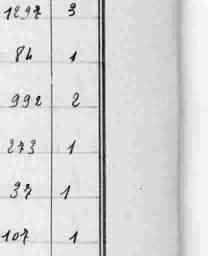 1297 3
84 1
992 2
273 1
37 1
107 1